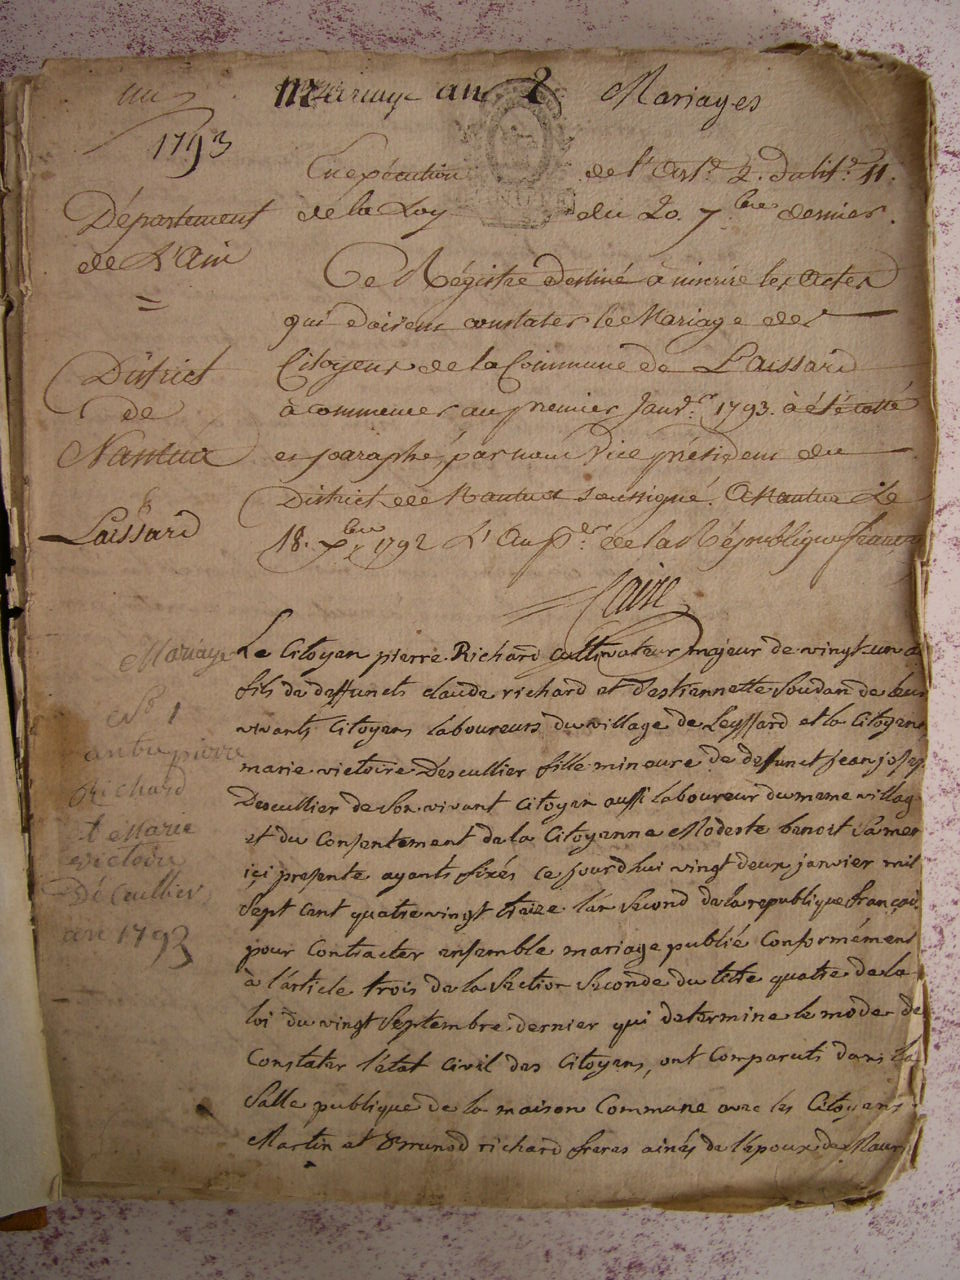 un
1793
Mariage an 2 Mariages
En exécution de l'Art.e 2. du tit.e 11.
de la Loy du 20 7.bre dernier.
Département
de L'Ain
Ce Régistre destiné à inscrire les Actes
qui doivent constater le Mariage des
District
de
Nantua
Citoyens de la Commune de Laissard
à commencer au premier Janv.er 1793. à été cotté
et paraphé, par nous Vice président du
District de Nantua soussigné. A Nantua Le
Laissard
18. Xbre 1792 L'An p.er de la République
Mariage
N° 1
entre pierre
Richard
et Marie
victoire
Décuillier
an 1793
Le Citoyen pierre Richard cultivateur majeur de vingt un a
fils de deffuncts claude richard et d'estiennette Soudan de leur
vivants Citoyens laboureurs du village de Leyssard et la Citoyene
marie victoire Descullier fille mineure de deffunct jean josep
Descullier de son vivant Citoyen aussi laboureur du meme villag
et du Consentement de la Citoyenne Modeste benoit sa mer
içi presente ayants fixés ce jourd'hui vingt deux janvier mil
sept cent quatre vingt treize l'an second de la republique françoi
pour Contracter ensemble mariage publié Conformément
à l'article trois de la Section Seconde du titre quatre de la
loi du vingt Septembre dernier qui determine le mode de
Constater l'état Civil des Citoyens, ont Comparuts dans la
Salle publique de la maison Commune avec les Citoyens
Martin et Brunod richard freres ainés de l'époux de